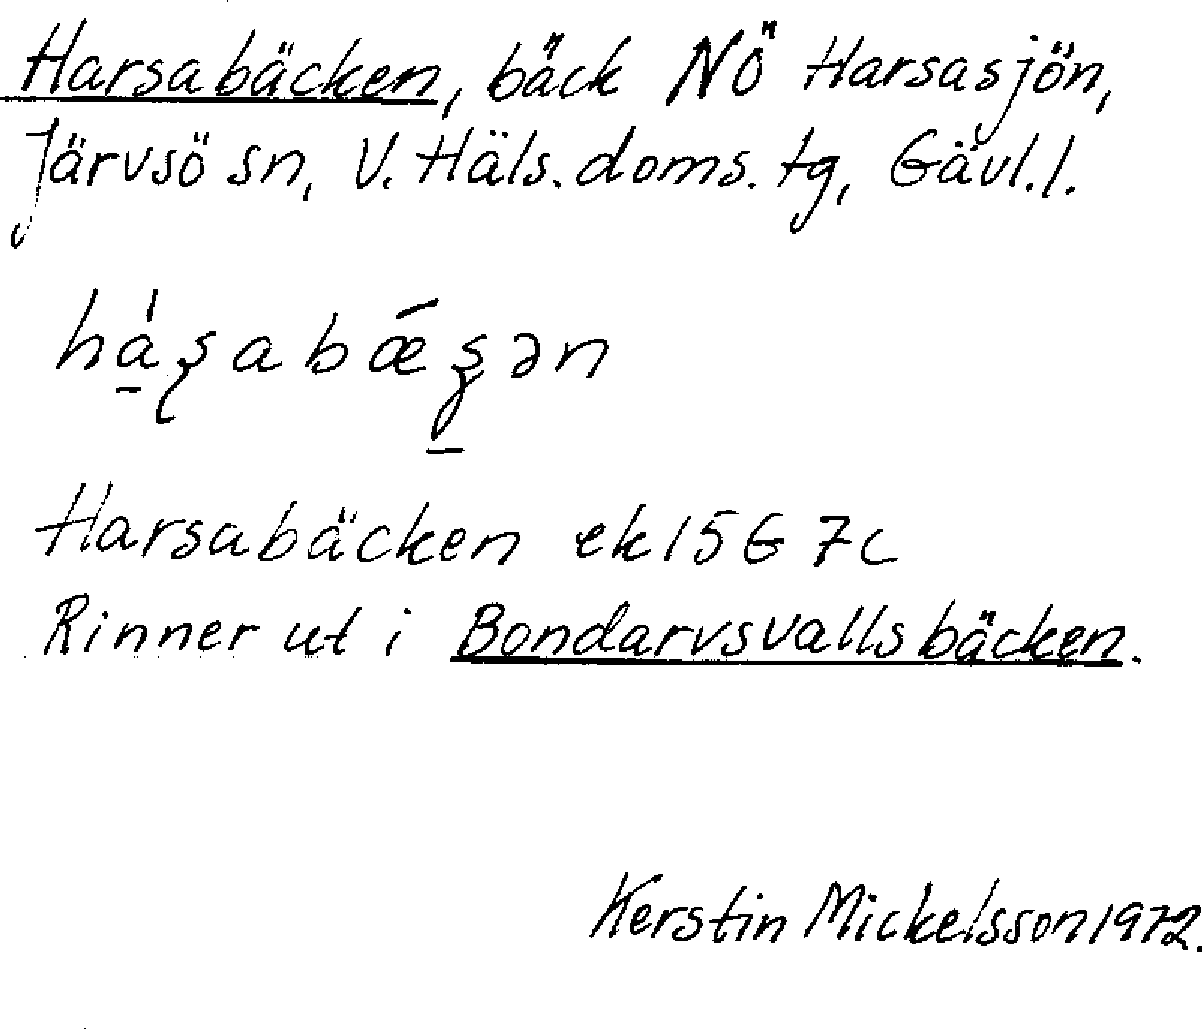 Harsabäcken, bäck NÖ Harsasjön,
Järvsö sn, V. Häls. doms. tg, Gävl. l.
Harsabäcken ek 15G 7c
Rinner ut i Bondarvsvallsbäcken.
Kerstin Mickelsson 1972.